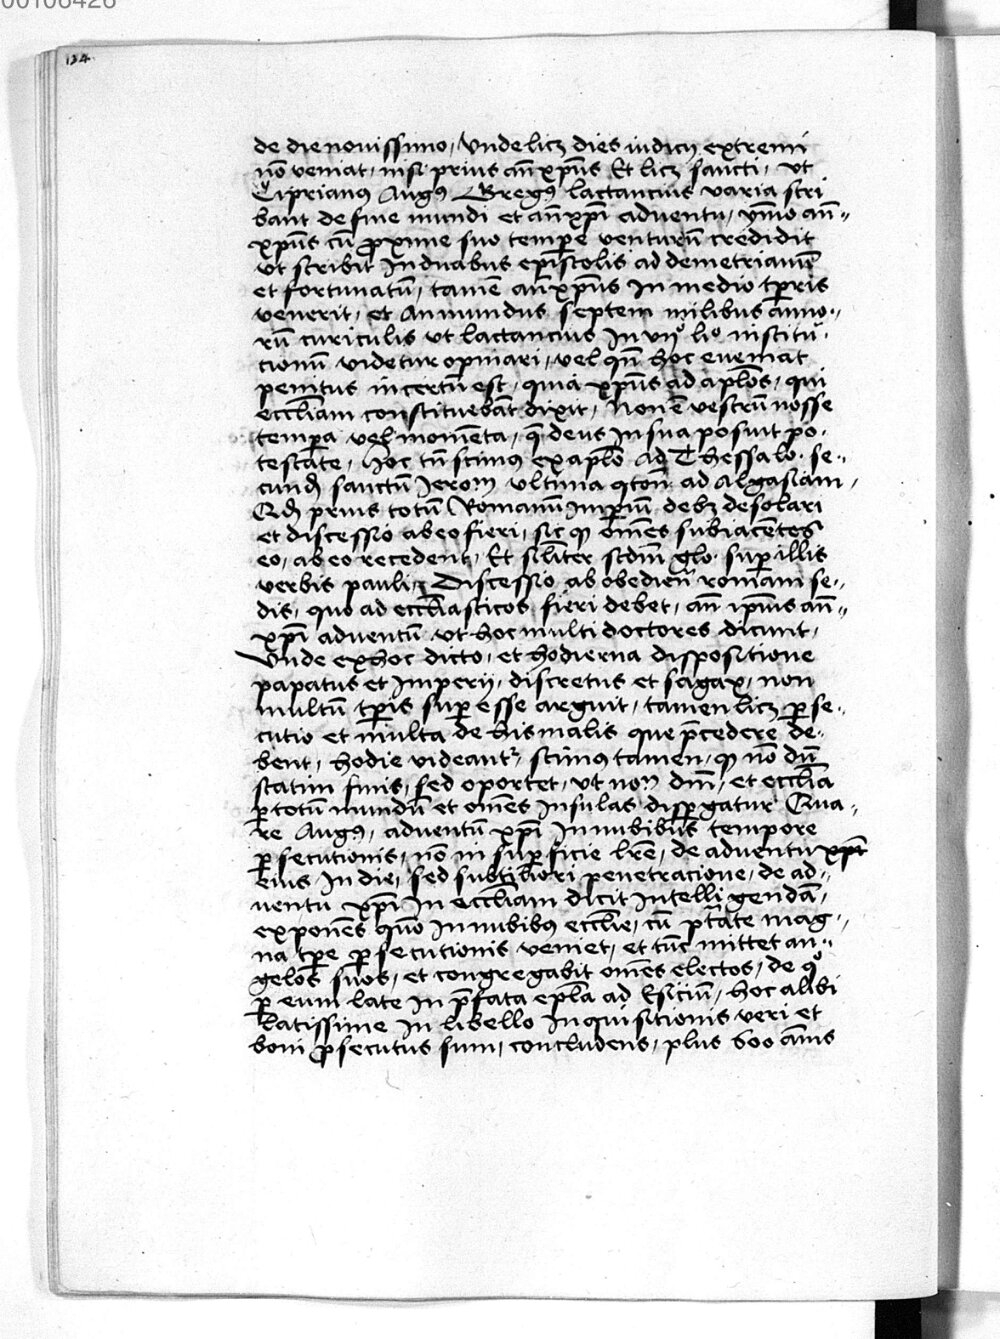 00106426
134.
de die novissimo, Unde licz dies iudicij extremi
nō veniat, nisi prius an̄xpūs Et licz sancti, vt
Ciprianus Augꝯ Gregꝯ lactancius varia scri
bant de fine mundi et an̄xpī adventu, ymo an̄=
xpūs cū ꝓxime suo tempe venturū credidit
vt scribit In duabus epistolis ad demetrianū
et fortunatū, tamē an̄xpūs In medio tp̄ris
venerit, et an mundus septem milibus anno=
rū curiculis vt lactancius In vijo lio institu=
cionū videtur opinari, vel qn̄ hoc eveniat
penitus incertū est, quia xpūs ad aplōs, qui
eccl̄iam constituebāt dixit, Non ē vestrū nosse
tempa vel momēta, q̄ deus In sua posuit po=
testate, Hoc tn̄ scimus ex aplō ad Thessalo. se=
cundū sanctū Jerom̄ vltima qtōn̄ ad Algasiam,
Qd̄ prius totū Romanū Imp̄iū debz desolari
et discessio ab eo fieri, sic ꝙ om̄es subiacētes
eo, ab eo recedent, Et sil̄iter scdm̄ glo. sup illis
verbis pauli, Discessio ab obedien̄ romani se=
dis, quo ad eccl̄iasticos fieri debet, an̄ ipīus an̄=
xpī adventū vt hoc multi doctores dicunt,
Unde ex hoc dicto, et hodierna dispositione
papatus et Imperij, discretus et sagax, non
multū tp̄ris supesse arguit, tamen licz ꝑse=
cutio et multa de his malis que p̄cedere de=
bent, hodie videantr, scimus tamen, ꝙ nō dū
statim finis, sed oportet, vt non̄ dn̄i, et eccl̄ia
ꝑ totū mundū et om̄es Insulas dispgatur Qua=
re Augꝯ, adventū xpī In nubibus tempore
ꝑsecutionis, nō in supficie lr̄e, de adventu xpī
eius In die, sed subtiliori penetracione, de ad=
ventu xpī In eccl̄iam dicit Intelligendā,
exponēs quō In nubibꝯ eccl̄ie, cū ptāte mag=
na tp̄e ꝑsecutionis veniet, et tūc mittet an=
gelos suos, et congregabit om̄es electos, de qo
ꝑ eum late In p̄fata epl̄a ad Esiciū, hoc alibi
latissime In libello Inquisitionis veri et
boni ꝓsecutus sum, concludens, plus 600 annis